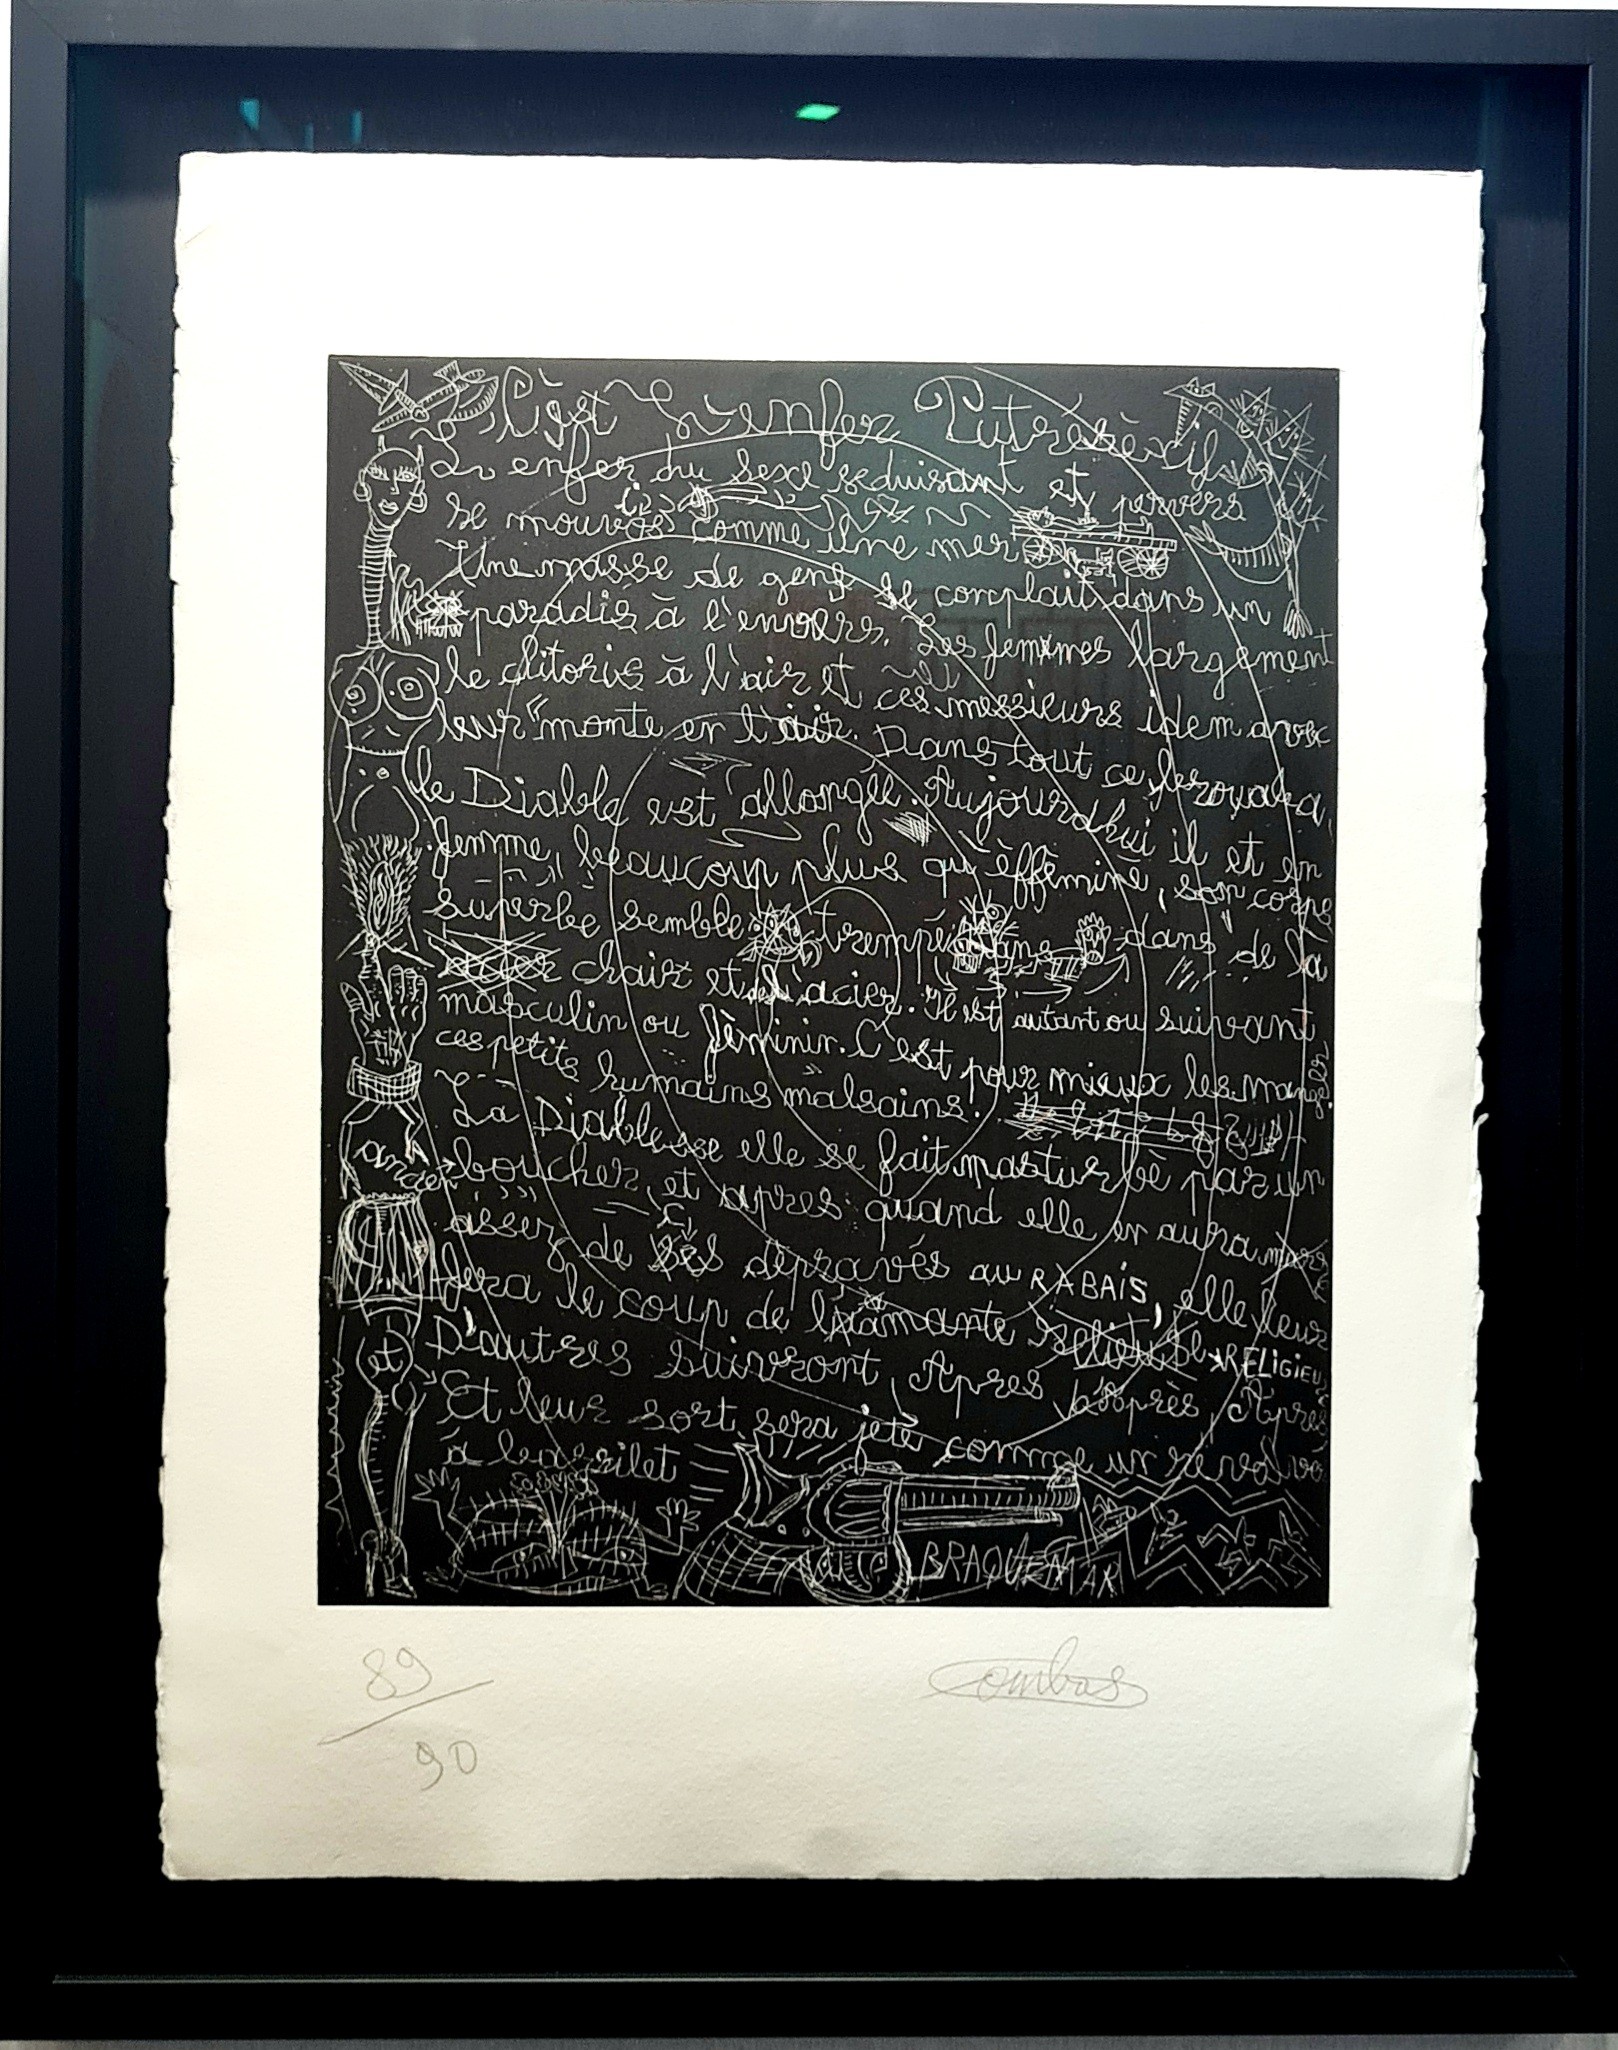 C'est L'enfer Putréscèxif
L'enfer du sexe seduisant et pervers
se mouvos comme une mer
Une masse de gens se complait dans un
paradis à l'envers. Les femmes largement
le clitoris à l'air et ces messieurs idem avec
leur "monte en l'air. Dans tout ce
le Diable est allongée. Aujourdhui il et en
femme, beaucoup plus qu'éffèminé, son corps
superbe semble trempé dans dans de la
chair et l'acier. Il est autant ou suivant
masculin ou fèminin. C'est pour mieux les manger
ces petits humains malsains.
La Diablesse elle se fait masturbé par un
ander boucher, et apres quand elle en aura marre
assez de ces depravés au RABAIS, elle leur
fera le coup de l'amante RELIGIEUSE
D'autres suivront Apres l'Après, Apres
et Et leur sort sera jeté comme un revolver
à barrilet
BRAQUEMAR
89/90
Combas